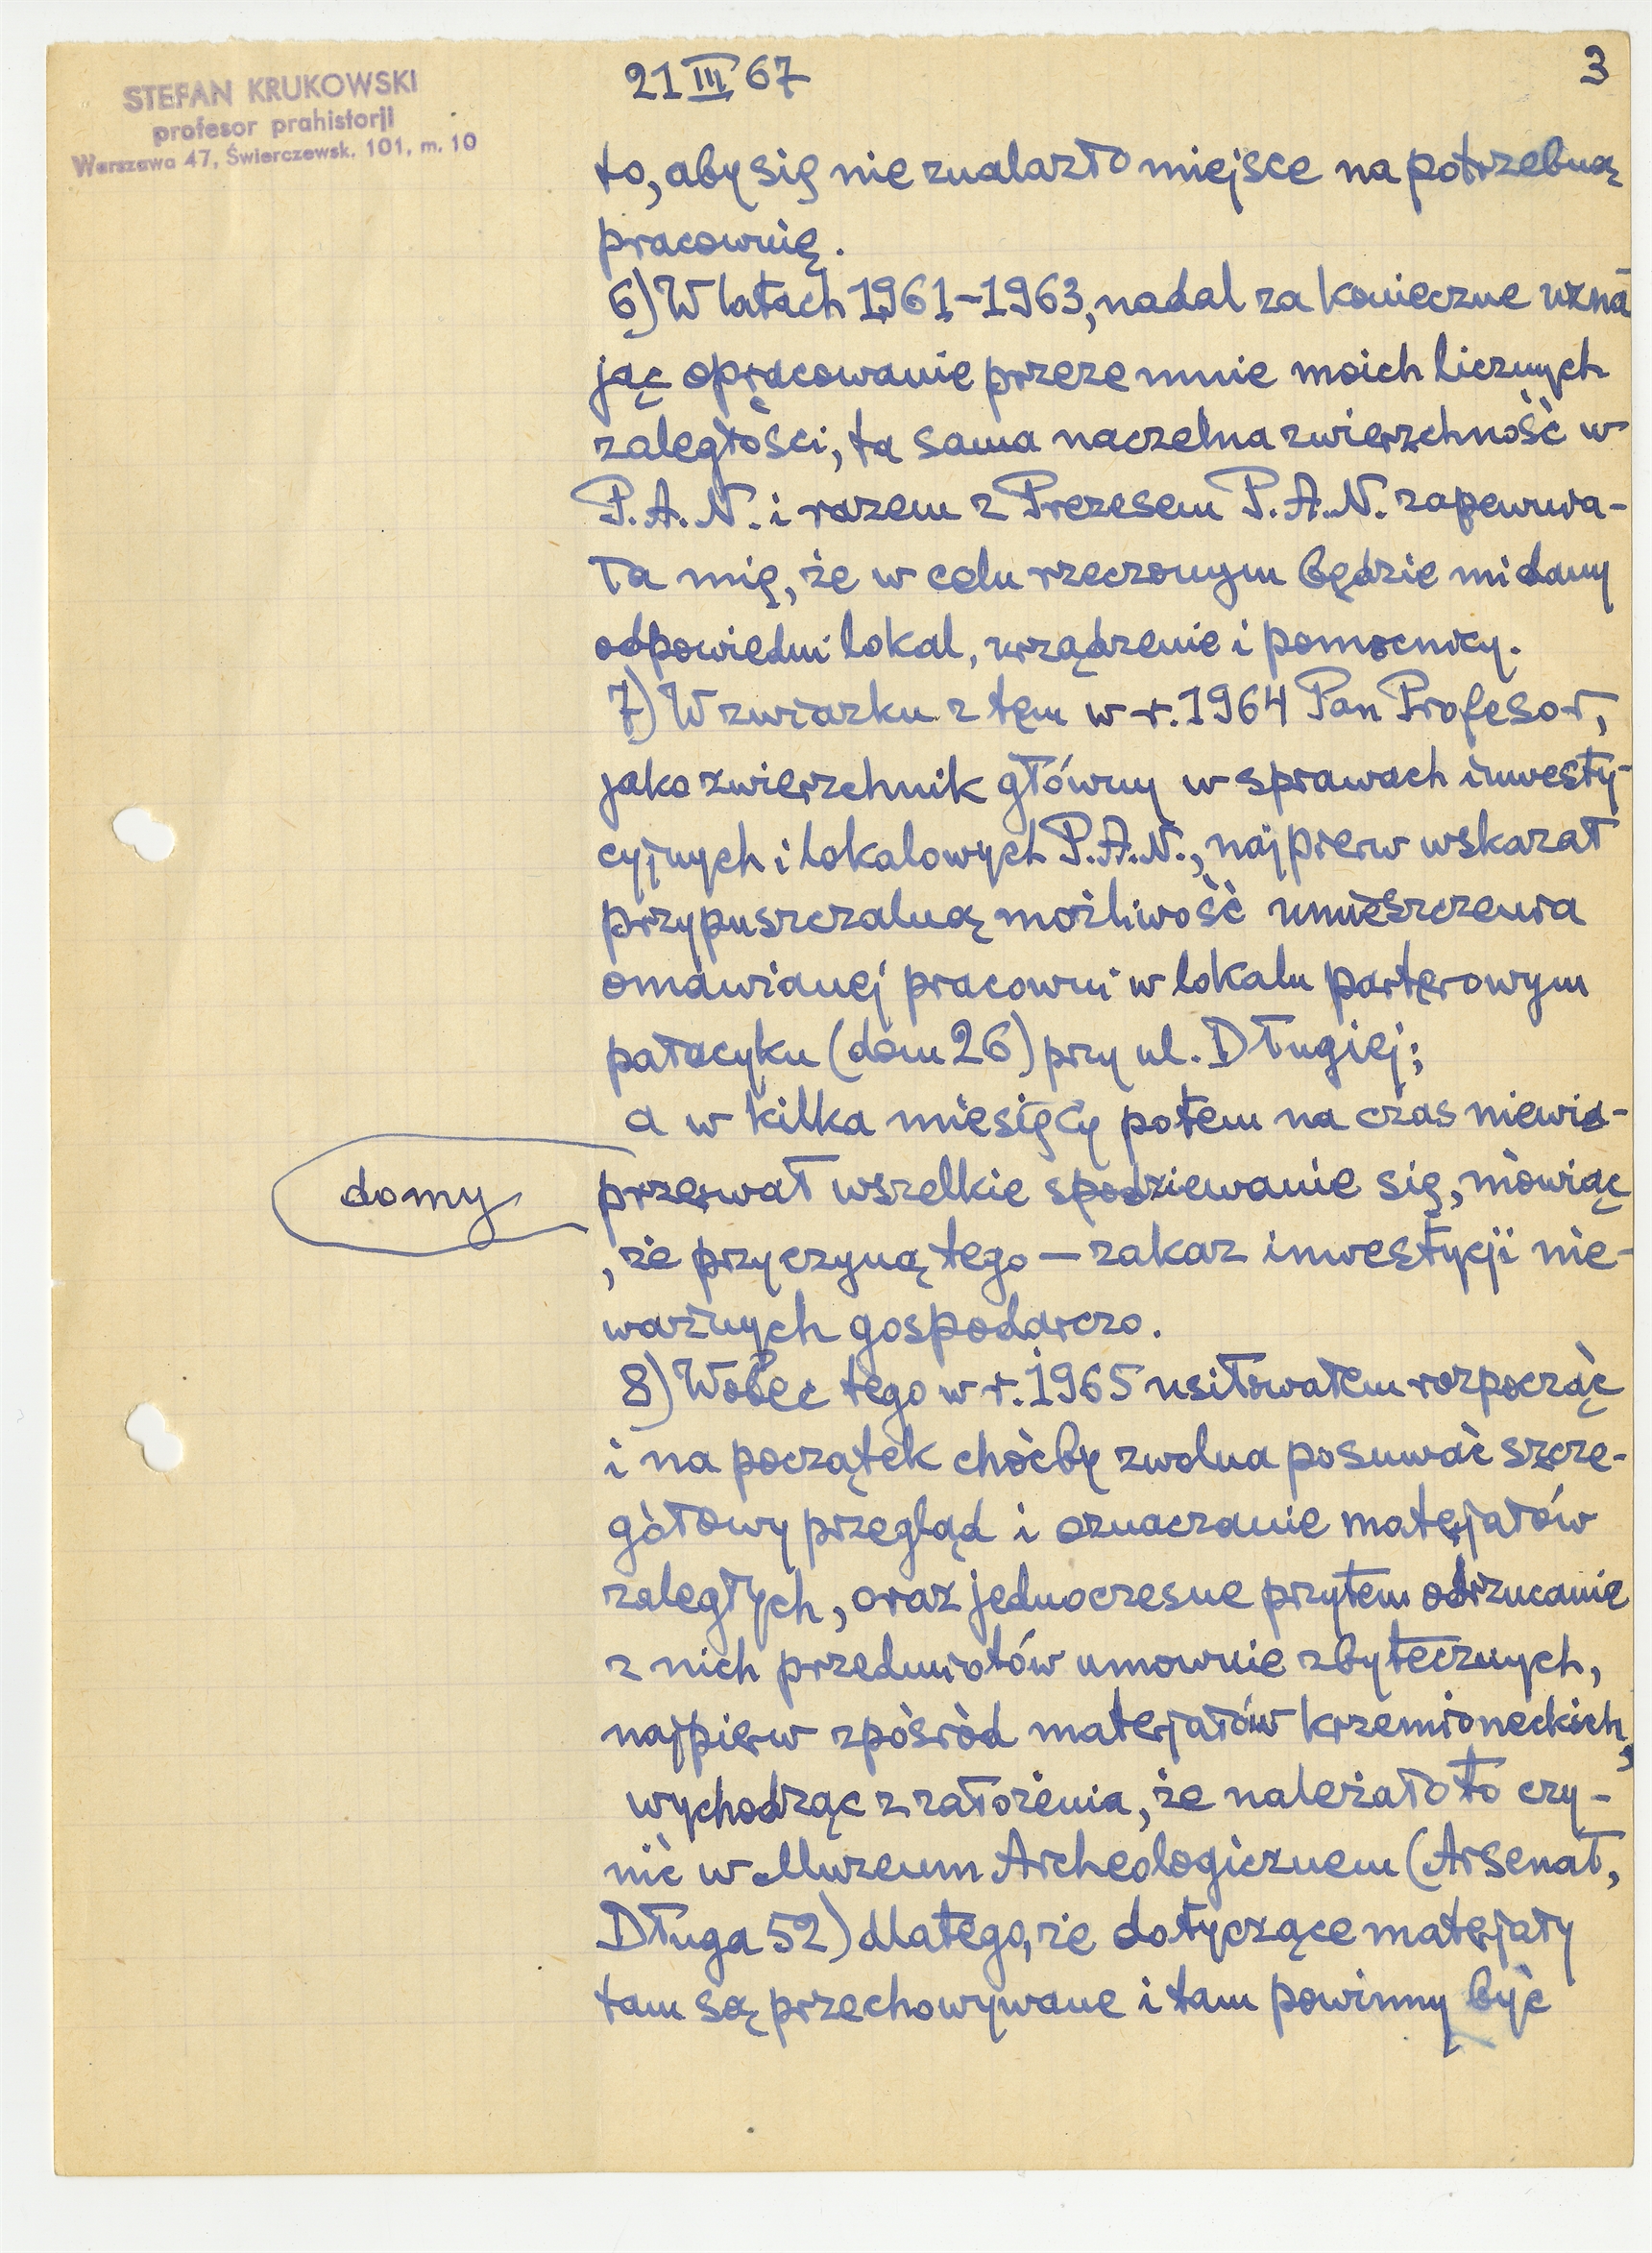 STEFAN KRUKOWSKI
profesor prahistorji
Warszawa 47, Świerczewsk. 101, m. 10
21 III 67
3
to, aby się nie znalazło miejsce na potrzebną
pracownię.
6) W latach 1961-1963, nadal za konieczne uzna
jąc opracowanie przeze mnie moich licznych
zaległości, ta sama naczelna zwierzchność w
P.A.N. i razem z Prezesem P.A.N. zapewnia-
ła mię, że w celu rzeczonym będzie mi dany
odpowiedni lokal, urządzenie i pomocnicy.
7) W zwiazku z tem w r. 1964 Pan Profesor,
jako zwierzchnik główny w sprawach inwesty-
cyjnych i lokalowych P.A.N., najpierw wskazał
przypuszczalną możliwość umieszczenia
omawianej pracowni w lokalu parterowym
pałacyku (dom 26) przy ul. Długiej;
a w kilka miesięcy potem na czas niewia-
domy
przerwał wszelkie spodziewanie się, mówiąc
, że przyczyną tego — zakaz inwestycji nie-
ważnych gospodarczo.
8) Wobec tego w r. 1965 usiłowałem rozpocząć
i na początek choćby zwolna posuwać szcze-
gółowy przegląd i oznaczanie materjałów
zaległych, oraz jednoczesne przytem odrzucanie
z nich przedmiotów umownie zbytecznych,
najpierw zpośród materjałów krzemioneckich,
wychodząc z założenia, że należało to czy-
nić w Muzeum Archeologicznem (Arsenał,
Długa 52) dlatego, że dotyczące materjały
tam są przechowywane i tam powinny być